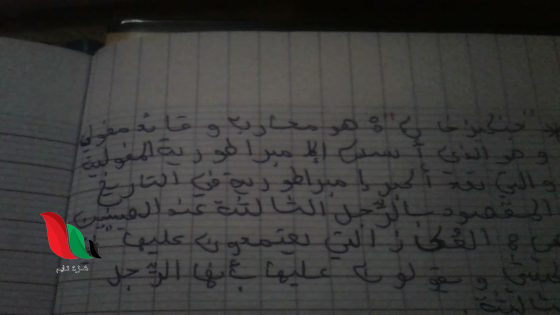 جنكيز خان هو محارب و قائد مغولي
و هو الذي أسس الإمبراطورية المغولية
والتي تعد أكبر إمبراطورية في التاريخ
المقصود بالرجل الثالثة عند
هي العكاز التي يعتمدون عليها
و يقولون عليها بأنها الرجل
الثالثة